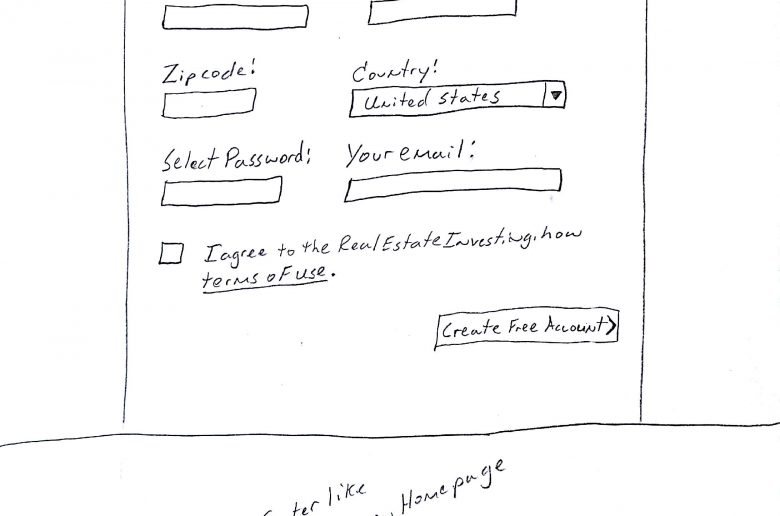 Zipcode:
Country:
United States
Select Password:
Your email:
I agree to the Real Estate Investing.how
terms of use.
Create Free Account>
like
Homepage